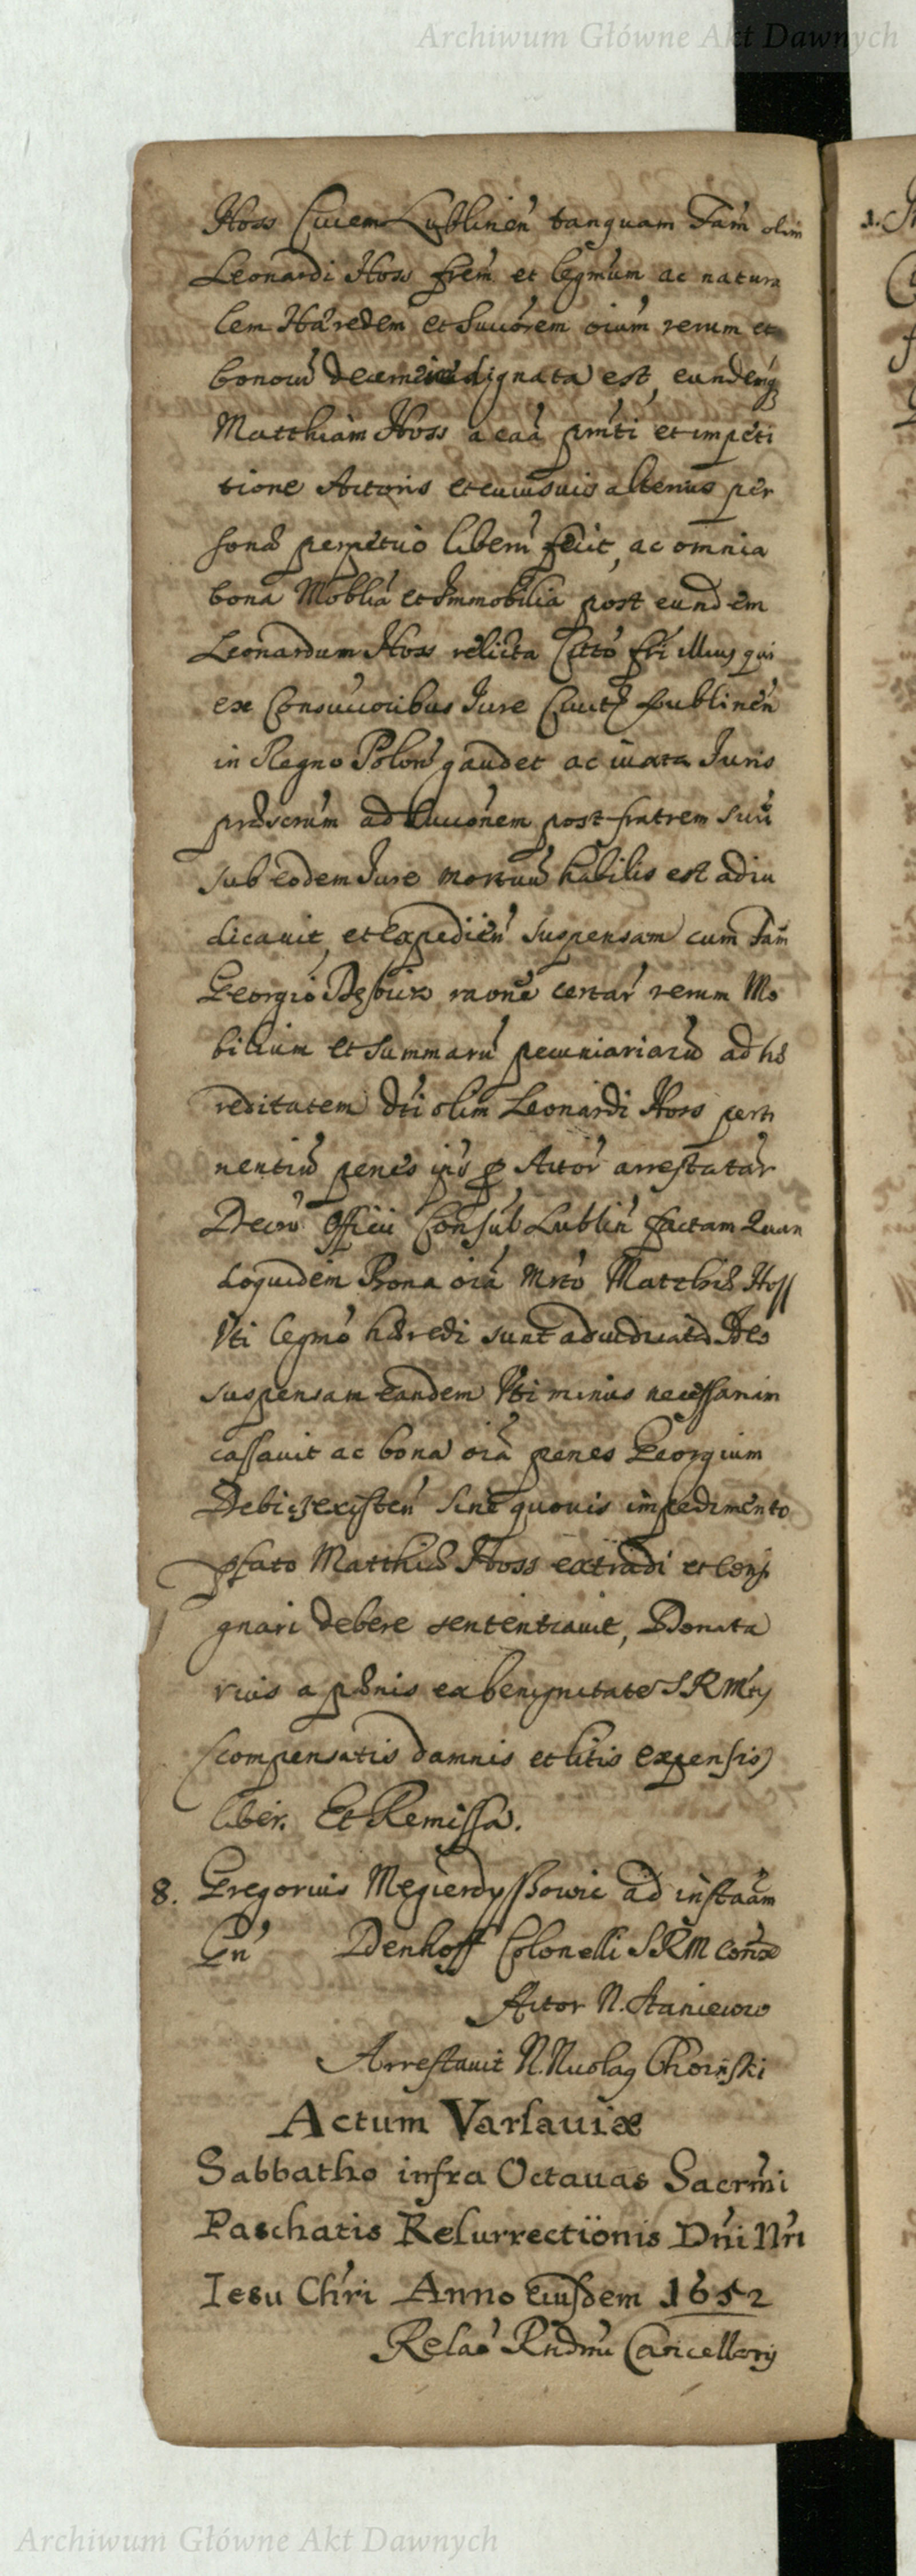 Archiwum Główne Akt Dawnych
Hoss Ciuem Lublinen̄ tanquam Fam̄ olim
Leonardi Hoss frem̄ et legmūm ac natura
lem Hæredem et Succōrem oium̄ rerum et
bonorū dignata est, eundemq̨
Matthiam Hoss a caā pm̄ti et impeti
tione Actoris et cuiusuis alterius per
sonæ perpetuo liberū fecit, ac omnia
bona Moblīa et Immobilia post eundem
Leonardum Hoss relicta Citto fri illius qui
ex Iure Ciuit Lublinen̄
in Regno Polon̄ gaudet ac iuxta Iuris
præscrūm ad Succōnem post fratrem suū
sub eodem Iure mortuū habilis est adiu
dicauit, et expedien̄ suspensam cum Fam̄
Georgio raoñe certar̄ rerum Mo
bilium et summarū pecuniariarū ad hæ
reditatem dti olim Leonardi Hoss perti
nentiū penes ip̄s p Actor̄ arrestatar̄
Decrō Officii Consūl Lublin̄ factam Quan
doquidem Bona oiā Mrto Matthiæ Hoss
Vti legmō hæredi sunt adiudicata Ideo
suspensam eandem Vti minus necessariam
cassauit ac bona oiā penes Georgium
Debicz existen̄ sine quouis impedimento
pfato Matthiæ Hoss extradi et consi
gnari debere sententiauit, Donata
rius a pænis ex benignitate S R Mtis
(compensatis damnis et litis expensis)
liber. Et Remissa.
8. Gregorius ad instaām
Gn̄ Denhoff Colonelli S R M conx̄
Actor N. Staniewic
Arrestauit N. Choinski
Actum Varsauiæ
Sabbatho infra Octauas Sacrmi
Paschatis Resurrectionis Dn̄i Nr̄i
Iesu Chr̄i Anno Eiusdem 1652
Relaō Rndmi Cancellarij
Archiwum Główne Akt Dawnych